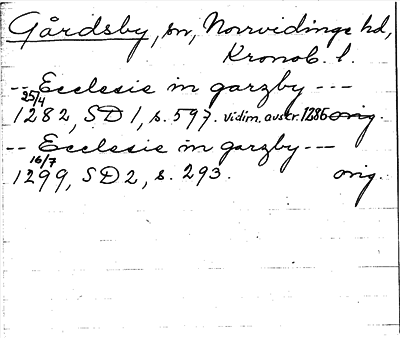 Gårdsby, sn, Norrvidinge hd,
Kronob. l.
-- Ecclesie in garzby ---
25/4
1282, SD 1, s. 597. vidim. avskr. 1286 orig.
-- Ecclesie in garzby ---
16/7
1299, SD 2, s. 293. orig.